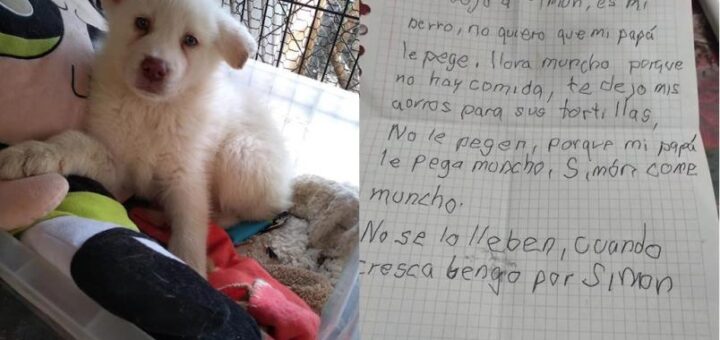 es mi
perro, no quiero que mi papá
le pege, llora muncho porque
no hay comida, te dejo mis
aorros para sus tortillas,
No le pegen, porque mi papá
le pega muncho, Simón come
muncho.
No se lo lleben, cuando
cresca bengo por Simon